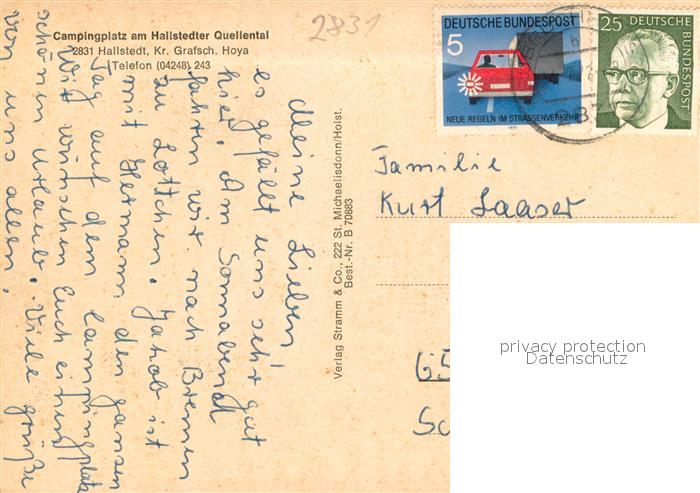 Campingplatz am Hallstedter Quellental
2831 Hallstedt, Kr. Grafsch. Hoya
Telefon (04248) 243
2831
DEUTSCHE BUNDESPOST
5
NEUE REGELN IM STRASSENVERKEHR
1971
25 DEUTSCHE
BUNDESPOST
Meine Lieben
es gefällt uns sehr gut
hier. Am Sonnabend
fahren wir nach Bremen
zu Lottchen. Jakob ist
mit Hermann den ganzen
Tag auf dem Campingplatz
Wir wünschen Euch einen
schönen Urlaub. Viele Grüße
von uns allen.
Verlag Stramm & Co., 222 St. Michaelisdonn/Holst.
Best.-Nr. B 70883
Familie
Kurt Laaser
privacy protection
Datenschutz